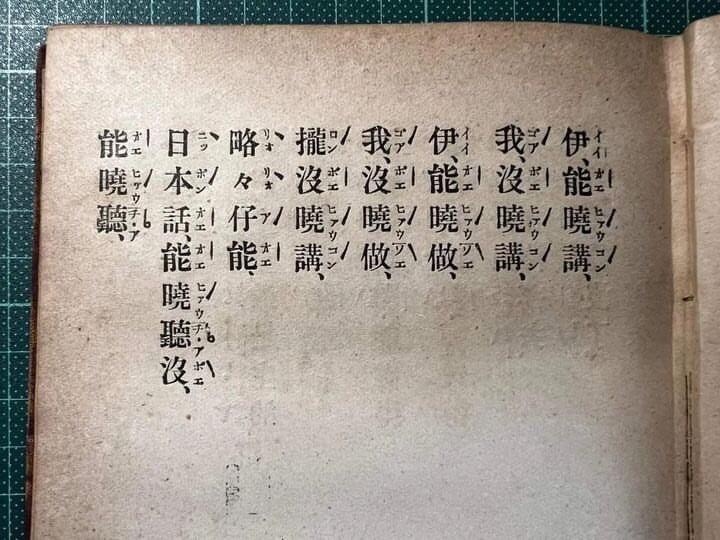 伊、能曉講、
我、沒曉講、
伊、能曉做、
我、沒曉做、
攏沒曉講、
略々仔能、
日本話、能曉聽沒、
能曉聽、